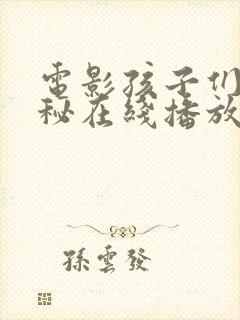 電影孩子们
秘在綫播放
孫雲發